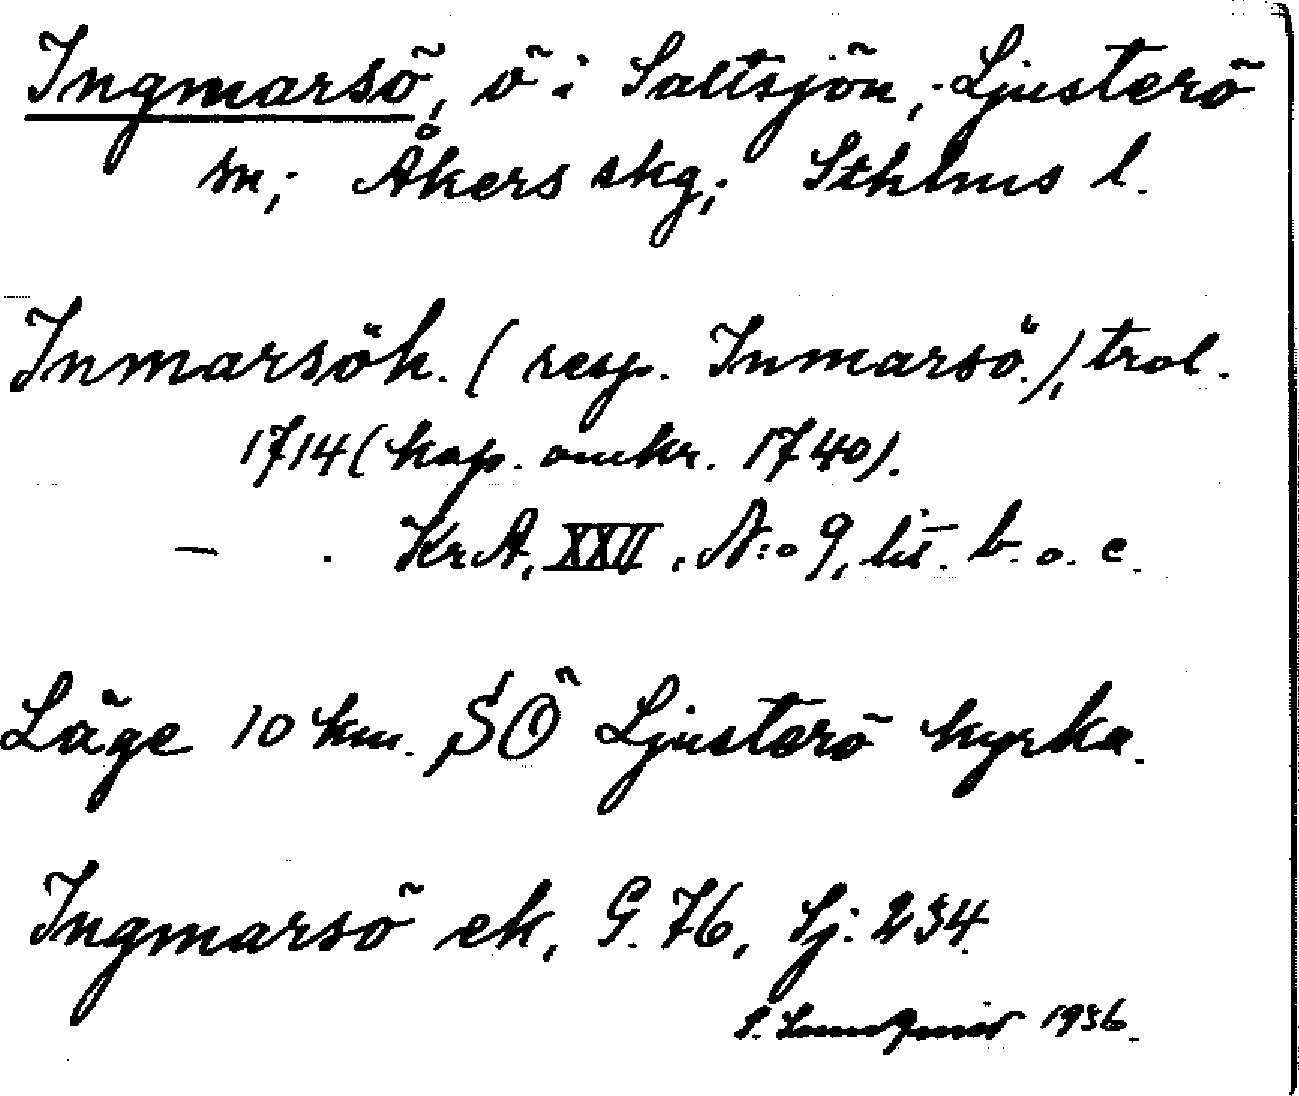 Ingmarsö, ö i Saltsjön, Ljusterö
sn; Åkers skg; Sthlms l.
Inmarsöh. (resp. Inmarsö.), trol.
1714 (kop. omkr. 1740).
— . KrA, XXII, N:o 9, lit. b. o. c.
Läge 10 km. SÖ Ljusterö kyrka.
Ingmarsö ek, G. 76, Sj: 234.
1936.